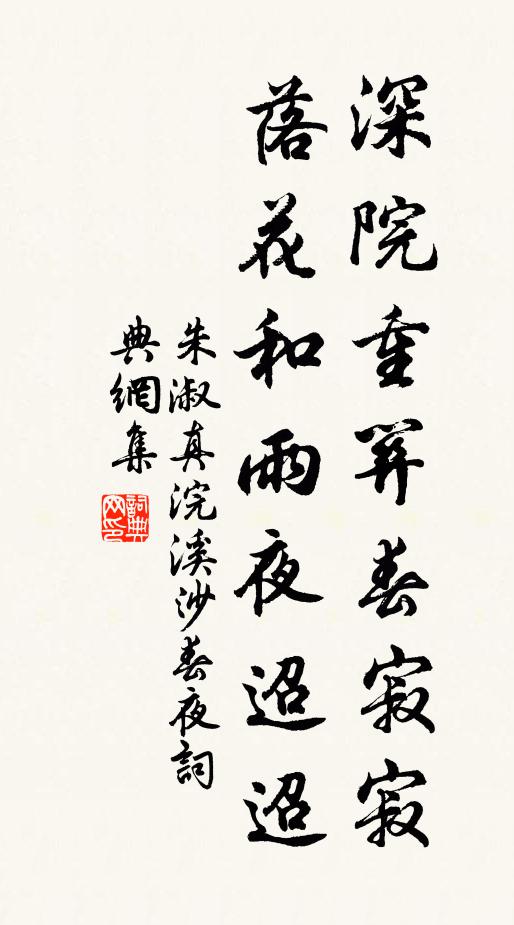 深院重關春寂寂
落花和雨夜迢迢
朱淑真浣溪沙春夜詞
典網集
詞典网印